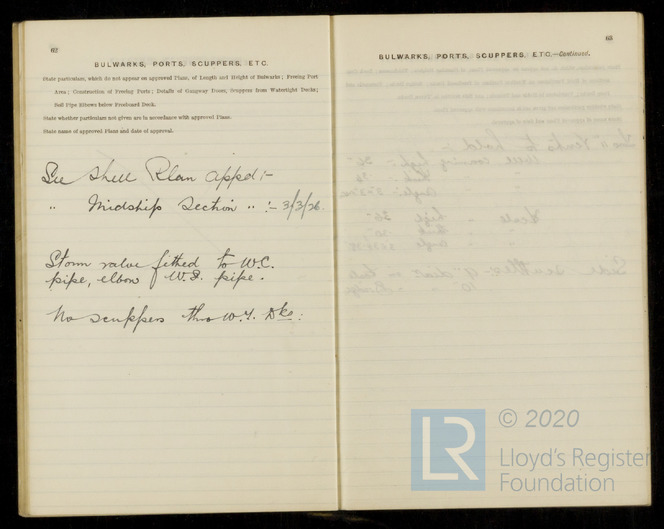 62
BULWARKS, PORTS, SCUPPERS, ETC.
State particulars, which do not appear on approved Plans, of Length and Height of Bulwarks; Freeing Port
Area; Construction of Freeing Ports; Details of Gangway Doors, Scuppers from Watertight Decks;
Soil Pipe Elbows below Freeboard Deck.
State whether particulars not given are in accordance with approved Plans.
State name of approved Plans and date of approval.
See Shell Plan appd:-
" Midship Section " :- 3/3/26.
Storm valve fitted to W.C.
pipe, elbow W.B. pipe.
No scuppers thro W.T. Dks:
63
BULWARKS, PORTS, SCUPPERS, ETC.—Continued.
LR
© 2020
Lloyd's Register
Foundation